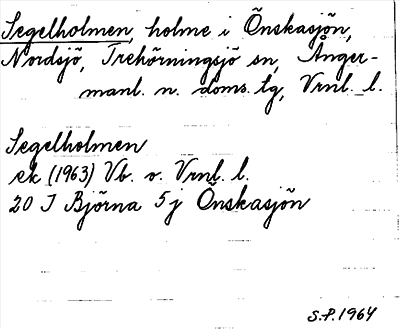 Segelholmen, holme i Önskasjön,
Nordsjö, Trehörningsjö sn, Ånger-
manl. n. doms. tg, Vrnl. l.
Segelholmen
ek (1963) Vb. o. Vrnl. l.
20 I Björna 5 j Önskasjön
S.P. 1964